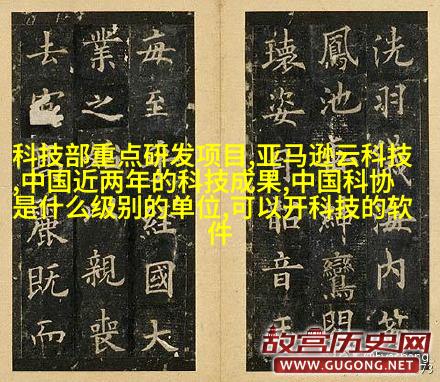 洗羽儀海內
鳳池紳鸞閣
瓌姿韶音
每至經國大
業之親喪
去官麗既而
科技部重点研发项目,亚马逊云科技
,中国近两年的科技成果,中国科协
是什么级别的单位,可以开科技的软
件
故宫历史网
WWW.GUGONG.NET